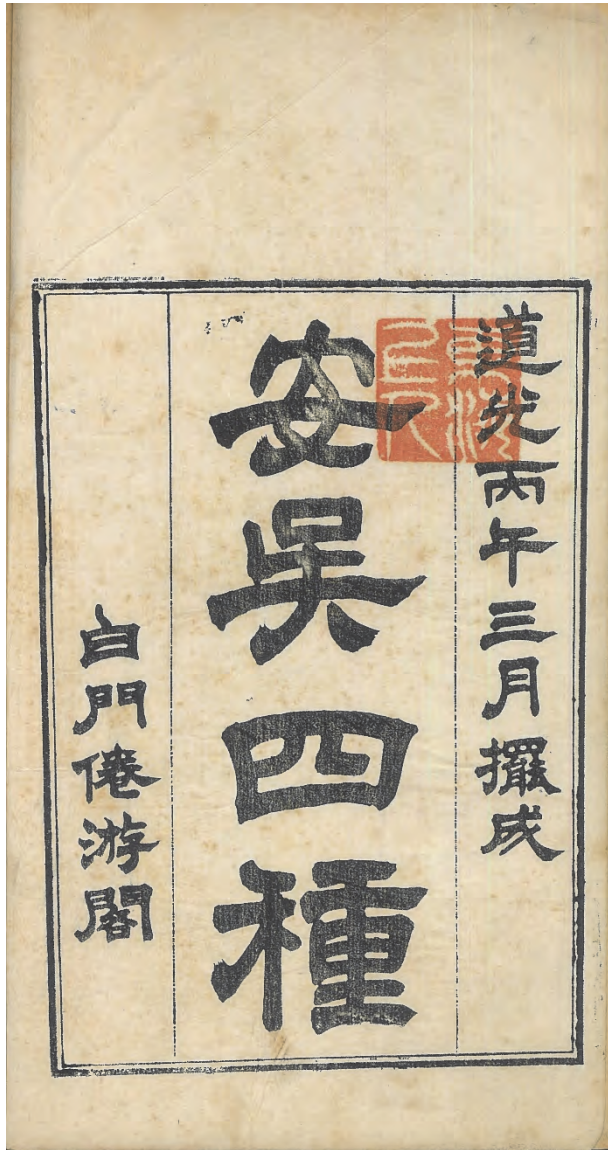 道光丙午三月擺成
安吳四種
白門倦游閣